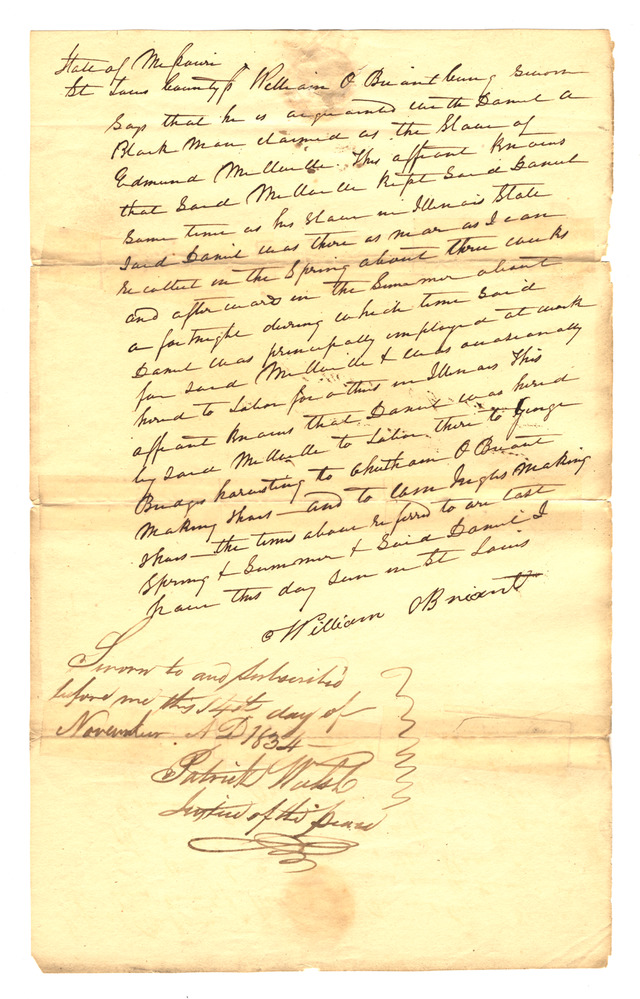 State of Missouri
St Louis County ss William O Briant being sworn
Says that he is acquainted with Daniel a
Black Man claimed as the Slave of
Edmund Melville. This affiant knows
that Said Melville kept Said Daniel
Some time as his Slave in Illinois State
Said Daniel was there as near as I can
Recollect in the Spring about three weeks
and afterwards in the Summer about
a fortnight during which time Said
Daniel was principally employed at work
for Said Melville & was occasionally
hired to Labor for others in Illinois This
affiant knows that Daniel was hired
by Said Melville to Labor there to George
harvesting to O Briant
Making and to Making
the times above Referred to are last
Spring & Summer & Said Daniel I
have this day seen in St Louis
William OBriant
Sworn to and Subscribed
before me this 14th day of
November A D 1834
Patrick Walsh
Justice of the Peace